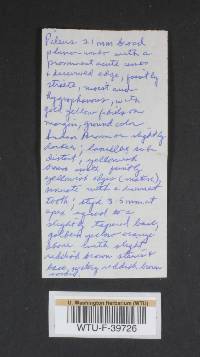 Pileus 21 mm broad
plano-convex with a
prominent acute umbo
edge, faintly
striate, moist and
hygrophanous, with
yellow fibrils on
margin, ground color
Brown or slightly
darker; lamellae sub-
distant, yellowish
brown with faintly
yellowish edges
sinuate with a decurrent
tooth; stipe 3.5 mm at
apex equal to a
slightly tapered base,
golden yellow-orange
above with slight
reddish brown stains
base, reddish brown
U. Washington Herbarium (WTU)
WTU-F-39726